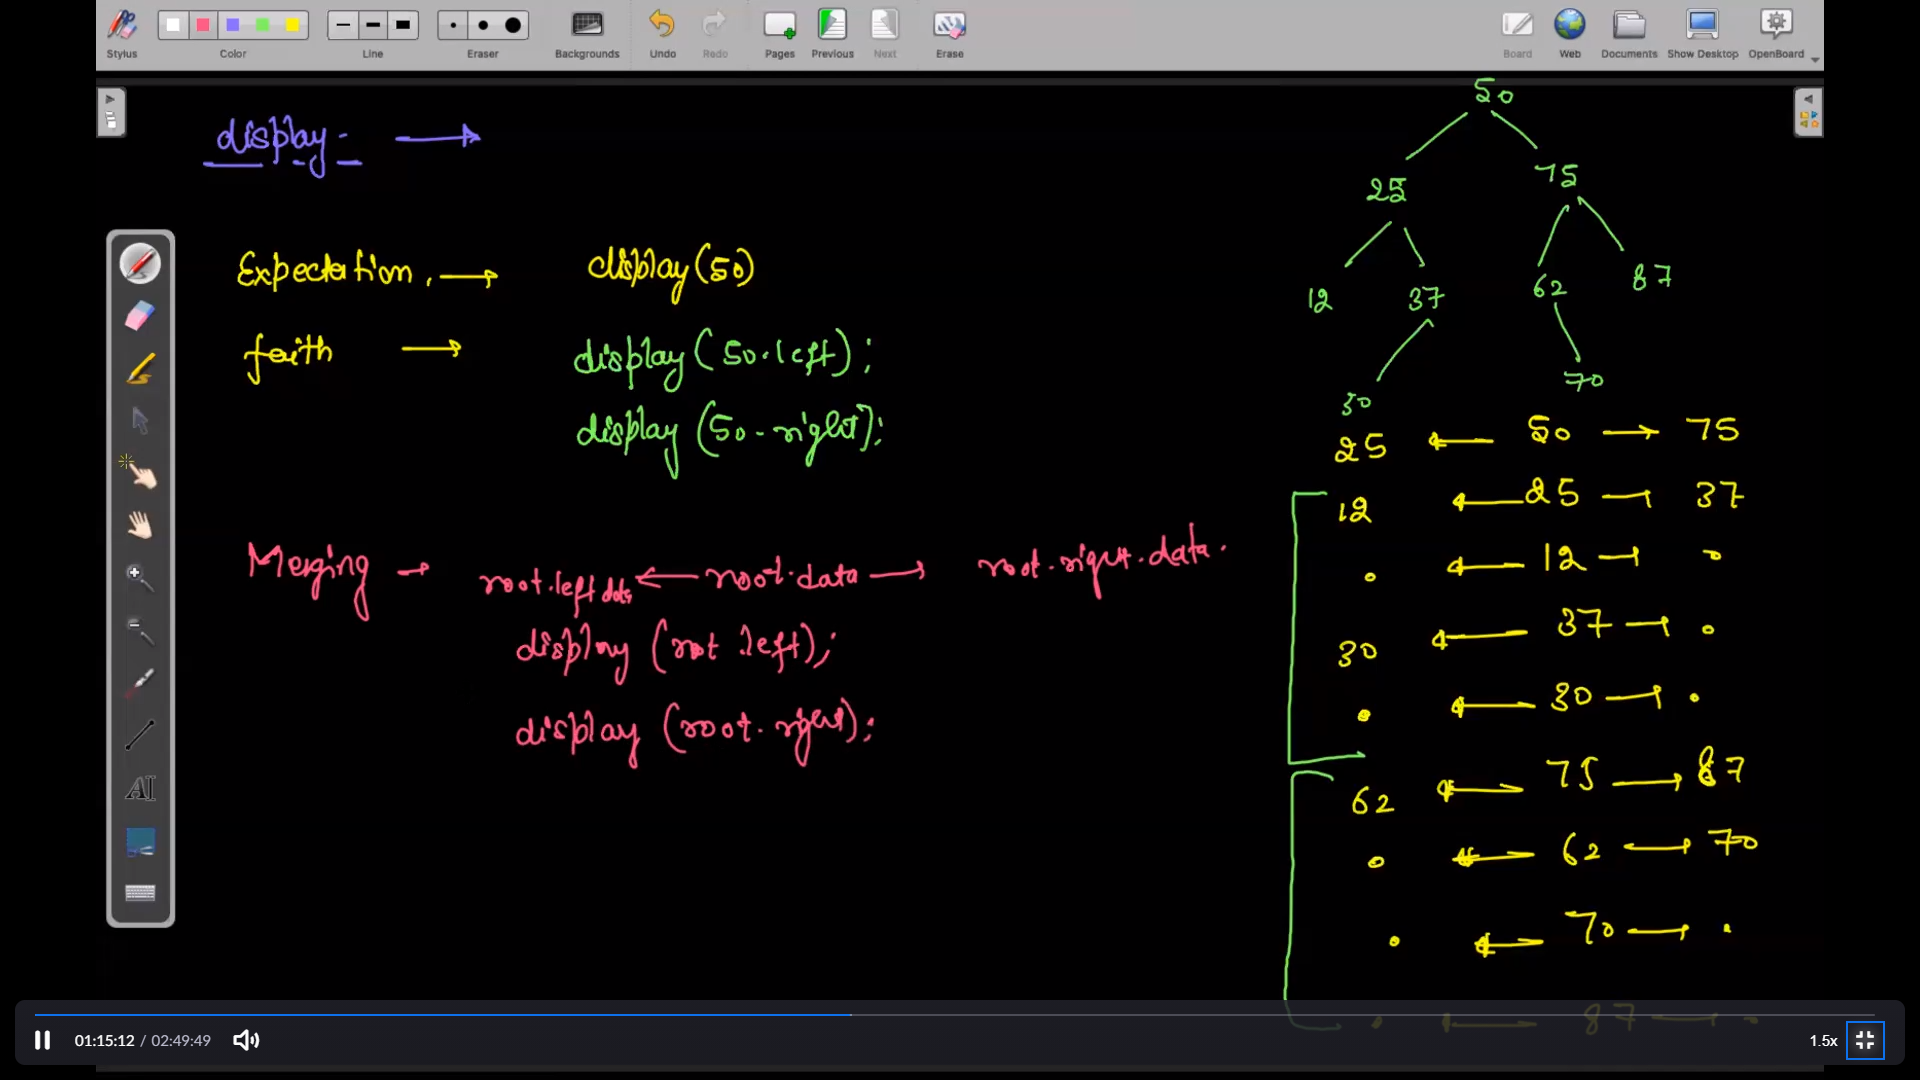 Stylus Color Line Eraser Backgrounds Undo Redo Pages Previous Next Erase Board Web Documents Show Desktop OpenBoard
display →
Expectation. → display(50)
faith → display(50.left);
display(50.right);
Merging → root.left data ← root.data → root.right.data.
display (root.left);
display (root.right);
50
25 75
12 37 62 87
30 70
25 ← 50 → 75
12 ← 25 → 37
. ← 12 → .
30 ← 37 → .
. ← 30 → .
62 ← 75 → 87
. ← 62 → 70
. ← 70 → .
. ← 87 → .
AI
01:15:12 / 02:49:49 1.5x